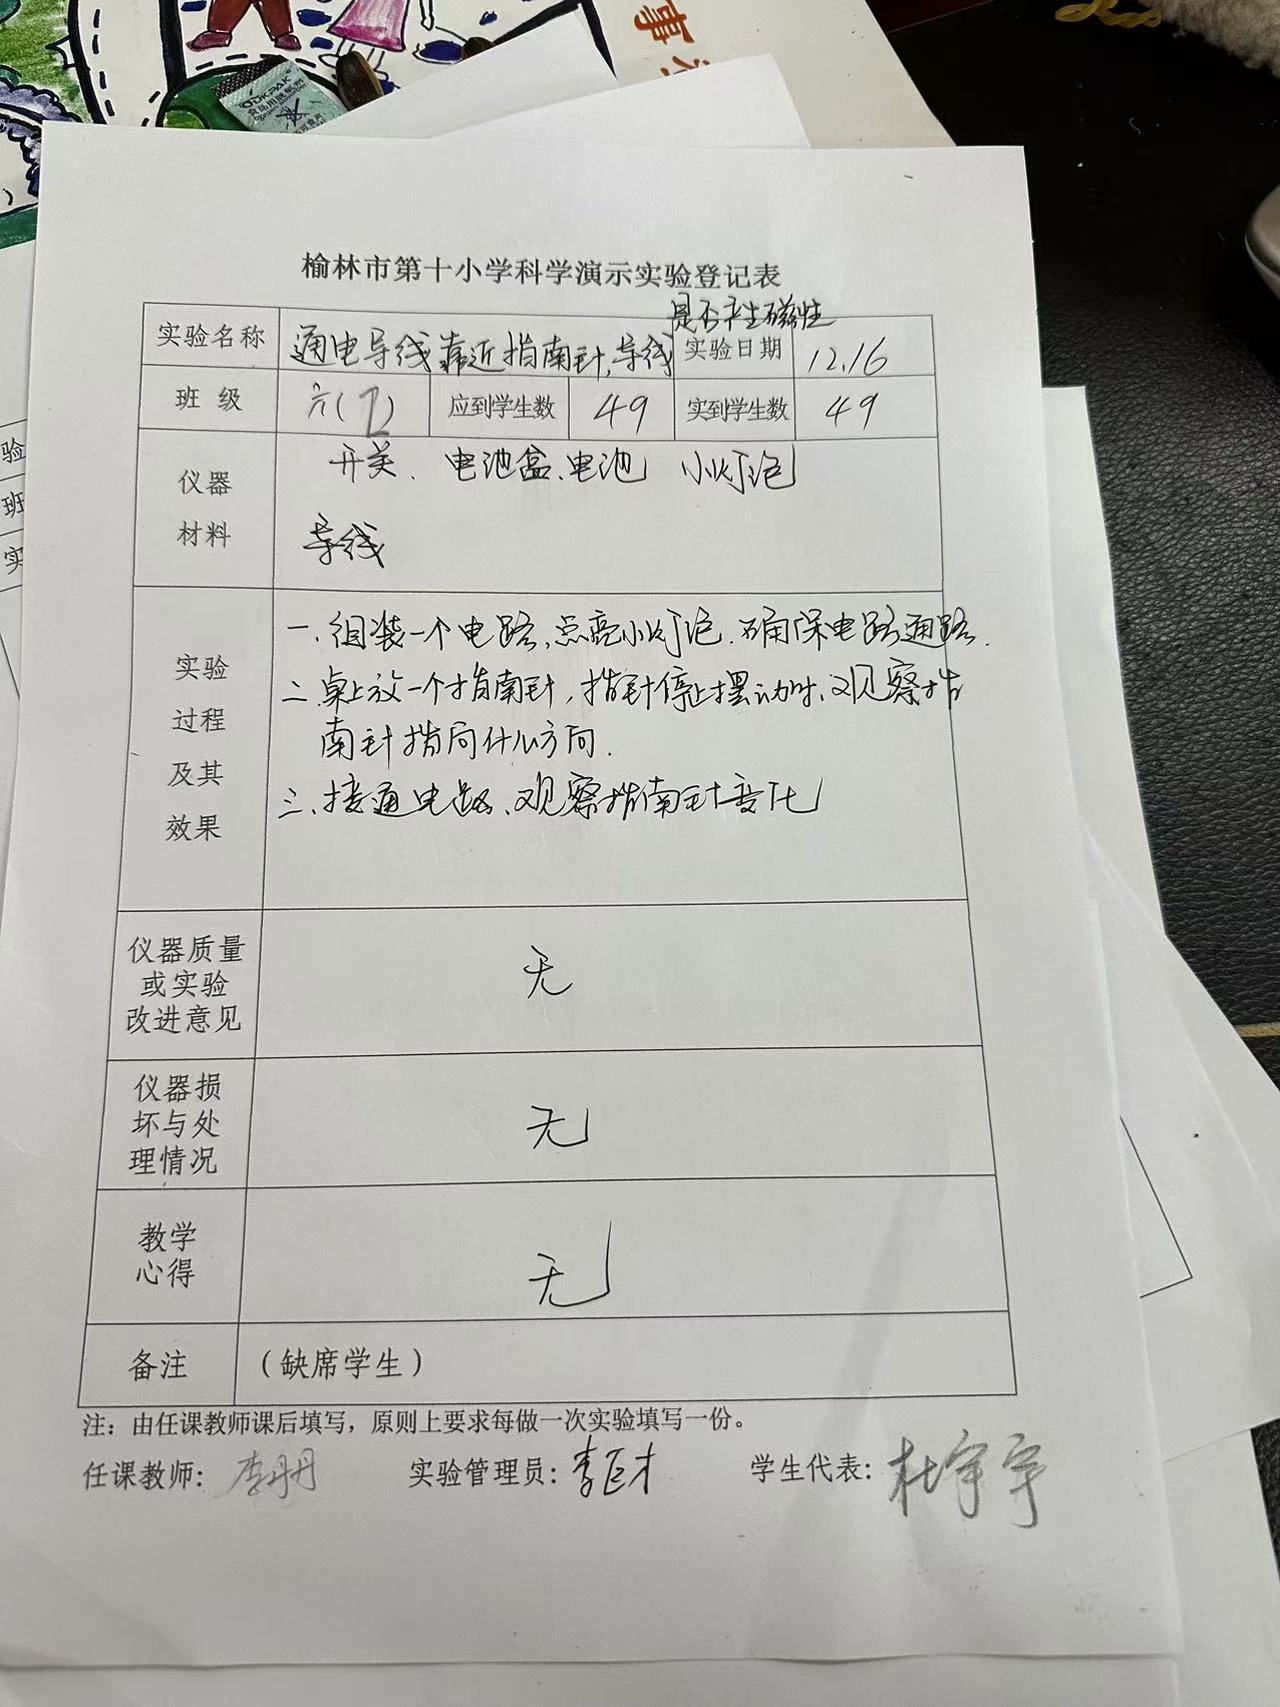 事
OKPAK
榆林市第十小学科学演示实验登记表
是否产生磁性
实验名称 通电导线靠近指南针,导线 实验日期 12.16
班 级 六( ) 应到学生数 49 实到学生数 49
仪器
材料
开关、电池盒、电池 小灯泡
导线
实验
过程
及其
效果
一、组装一个电路、点亮小灯泡、确保电路通路.
二、桌上放一个指南针,指针停止摆动时、观察指
南针指向什么方向.
三、接通电路、观察指南针变化
仪器质量
或实验
改进意见
无
仪器损
坏与处
理情况
无
教学
心得
无
备注 (缺席学生)
注:由任课教师课后填写,原则上要求每做一次实验填写一份。
任课教师: 李丹丹 实验管理员: 李巨才 学生代表: 杜宇宇
验
班
实